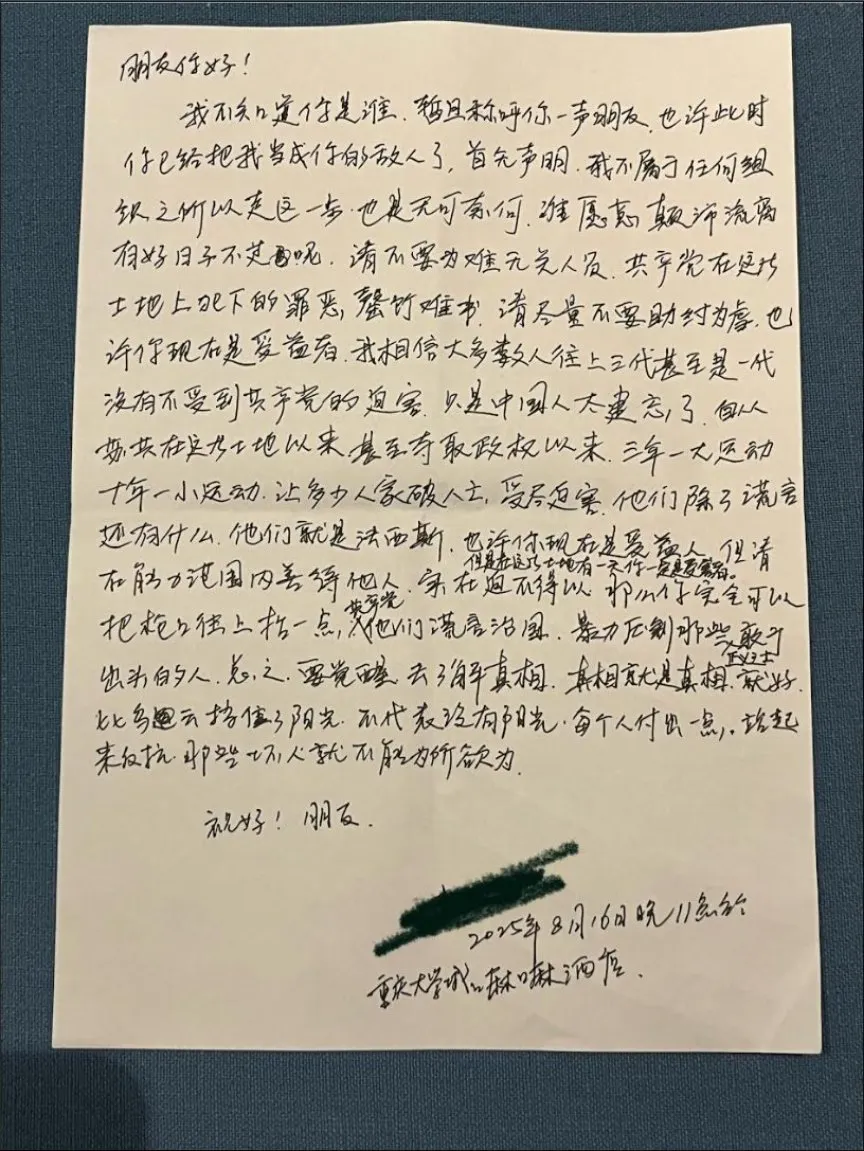 朋友你好!
我不知道你是谁.暂且称呼你一声朋友.也许此时
你已给把我当成你的敌人了,首先声明.我不属于任何组
织之所以走这一步.也是无可奈何.谁愿意颠沛流离
有好日子不过呢.请不要为难无关人员.共产党在这片
土地上犯下的罪恶,罄竹难书.请尽量不要助纣为虐.也
许你现在是受益者.我相信大多数人往上三代甚至是一代
没有不受到共产党的迫害.只是中国人太健忘了.自从
共在这片土地以来.甚至夺取政权以来.三年一大运动
十年一小运动.让多少人家破人亡,受尽迫害.他们除了谎言
还有什么.他们就是法西斯.也许你现在是受益人.但请
但是在这片土地有一天你一定是受害者。
在能力范围内善待他人.实在迫不得以.那么你完全可以
共产党
把枪口往上抬一点,他们谎言治国.暴力压制那些敢于
正义之士
出头的人.总之.要觉醒.去了解真相.真相就是真相.就好
比乌云挡住了阳光.不代表没有阳光.每个人付出一点,.站起
来反抗.那些坏人就不能为所欲为.
祝好!朋友.
2025年8月16日晚11点于
重庆大学城口麻口麻酒店.